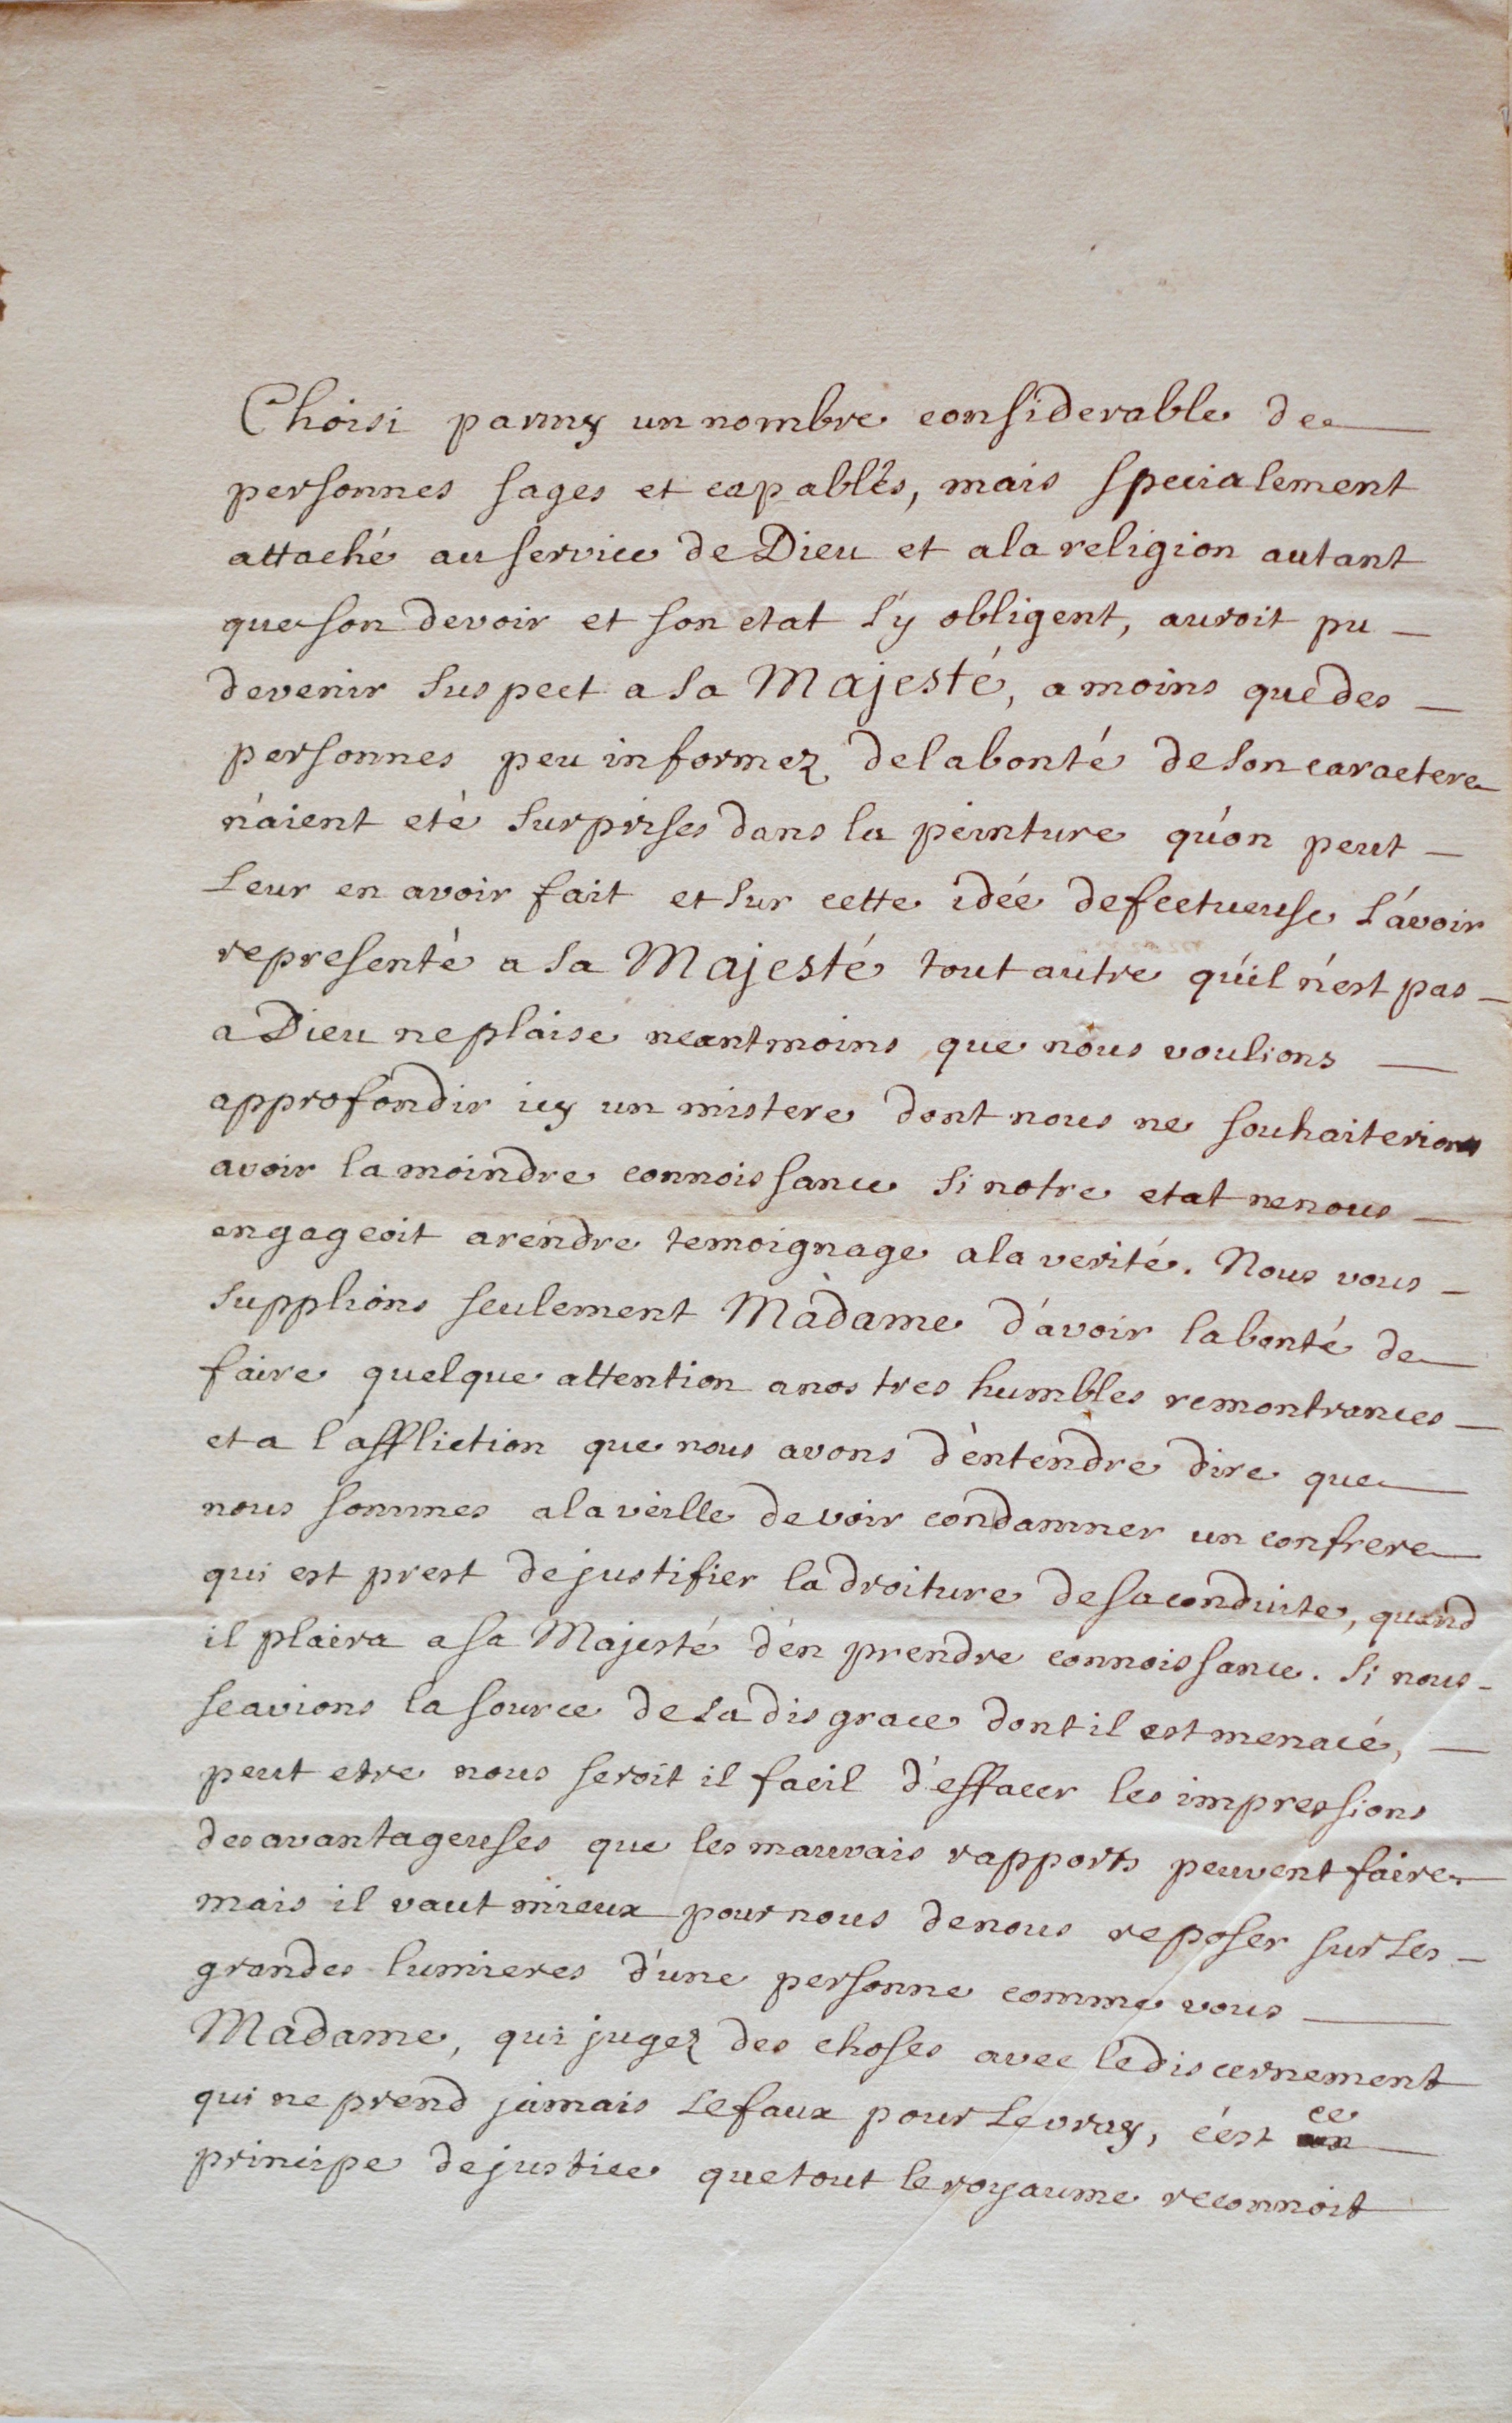 Choisi parmy un nombre considerable de
personnes sages et capables, mais specialement
attaché au service de Dieu et a la religion autant
que son devoir et son etat l'y obligent, auroit pu
devenir suspect a sa Majesté, a moins que des
personnes peu informez de la bonté de son caractere
n'aient eté surprises dans la peinture qu'on peut
leur en avoir fait et sur cette idée defectueuse l'avoir
representé a sa Majesté tout autre qu'il n'est pas
a Dieu ne plaise neantmoins que nous voulions
approfondir icy un mistere dont nous ne souhaiterions
avoir la moindre connoissance si notre etat ne nous
engageoit a rendre temoignage a la verité. Nous vous
supplions seulement Madame d'avoir la bonté de
faire quelque attention a nos tres humbles remontrances
et a l'affliction que nous avons d'entendre dire que
nous sommes a la veille de voir condamner un confrere
qui est prest de justifier la droiture de sa conduite, quand
il plaira a sa Majesté d'en prendre connoissance. Si nous
scavions la source de la disgrace dont il est menacé,
peut etre nous seroit il facil d'effacer les impressions
desavantageuses que les mauvais rapports peuvent faire
mais il vaut mieux pour nous de nous reposer sur les
grandes lumieres d'une personne comme vous
Madame, qui jugez des choses avec le discernement
qui ne prend jamais le faux pour le vray, c'est ce
principe de justice que tout le royaume reconnoit